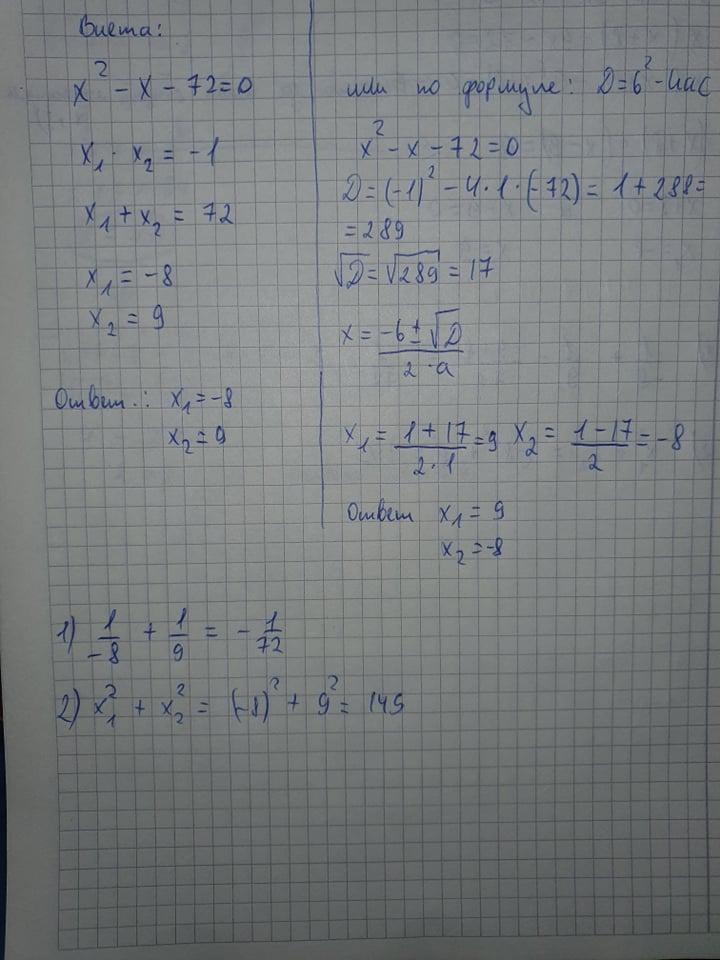 Виета:
x² - x - 72 = 0
x₁ · x₂ = -1
x₁ + x₂ = 72
x₁ = -8
x₂ = 9
Ответ.: x₁ = -8
x₂ = 9
или по формуле: D = b² - 4ac
x² - x - 72 = 0
D = (-1)² - 4 · 1 · (-72) = 1 + 288 =
= 289
√D = √289 = 17
x = (-b ± √D)/(2 · a)
x₁ = (1 + 17)/(2 · 1) = 9 x₂ = (1 - 17)/2 = -8
Ответ x₁ = 9
x₂ = -8
1) 1/(-8) + 1/9 = - 1/72
2) x₁² + x₂² = (-8)² + 9² = 145